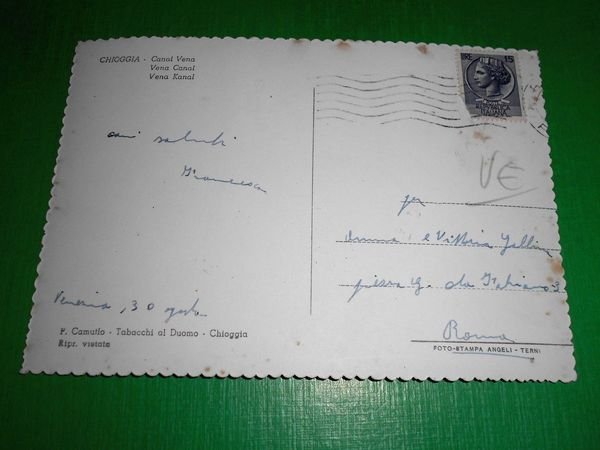 CHIOGGIA - Canal Vena
Vena Canal
Vena Kanal
LIRE 15
REPUBBLICA
ITALIANA
cari saluti
Francesca
VE
per
e Vittoria
piazza G. da Fabriano 3
Roma
Venezia, 30 agosto
F. Camuffo - Tabacchi al Duomo - Chioggia
Ripr. vietata
FOTO-STAMPA ANGELI - TERNI